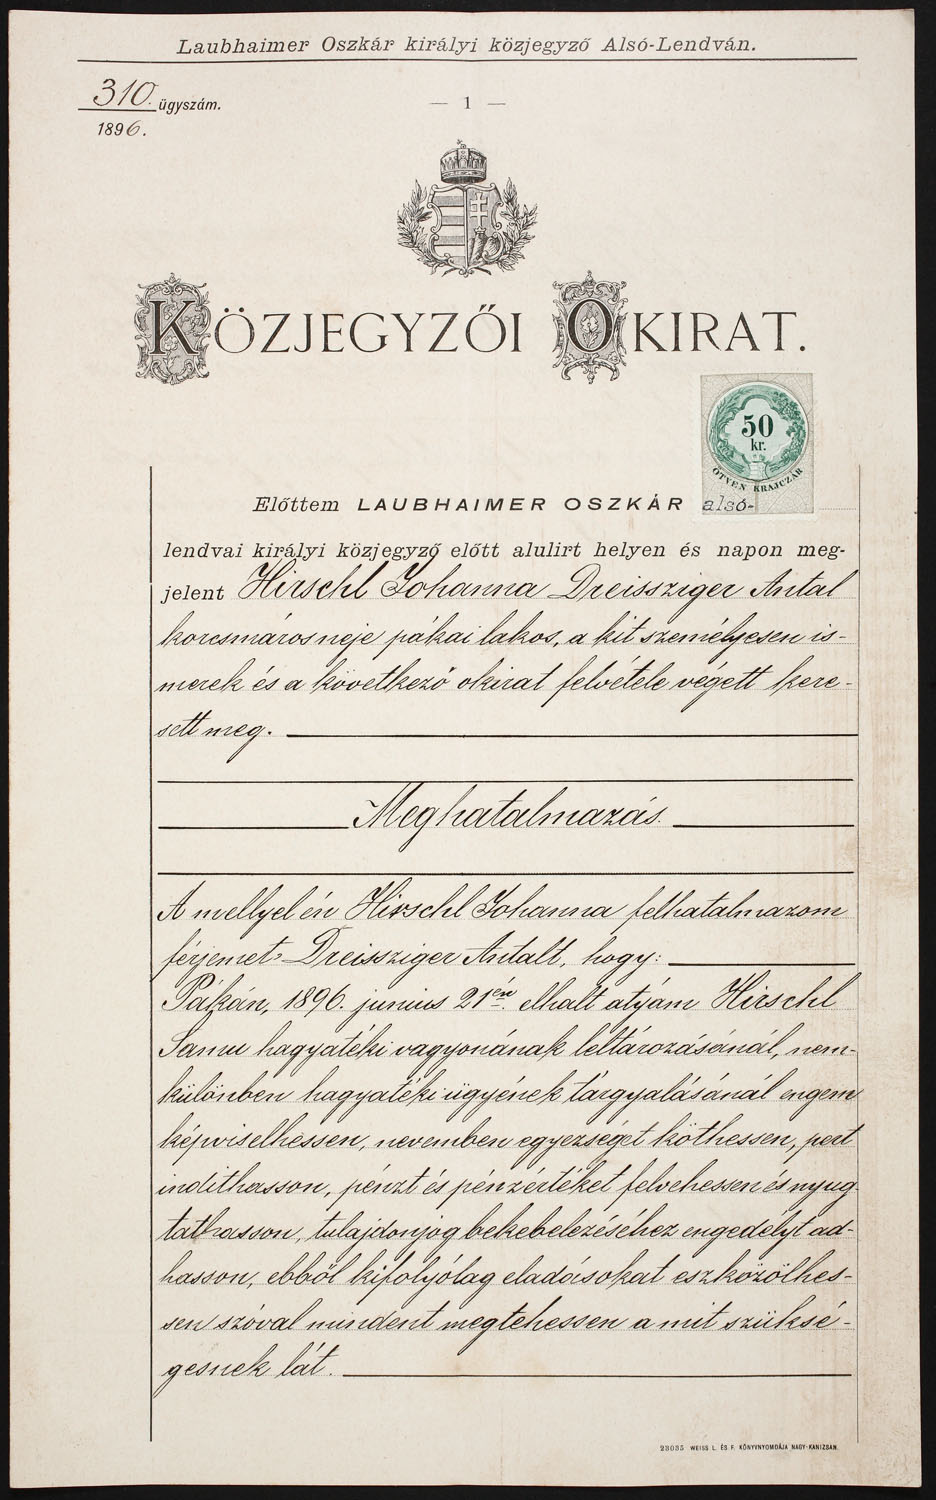 Laubhaimer Oszkár királyi közjegyző Alsó-Lendván.
310. ügyszám.
1896.
— 1 —
KÖZJEGYZŐI OKIRAT.
50
kr.
ÖTVEN KRAJCZÁR
Előttem LAUBHAIMER OSZKÁR alsó-
lendvai királyi közjegyző előtt alulirt helyen és napon meg-
jelent Hirschl Johanna Dreissziger Antal
korcsmáros neje pákai lakos, a kit személyesen is-
merek és a következő okirat felvétele végett kere-
sett meg.
Meghatalmazás.
A mellyel én Hirschl Johanna felhatalmazom
férjemet Dreissziger Antalt, hogy:
Pákán, 1896. junius 21én. elhalt atyám Hirschl
Samu hagyatéki vagyonának leltározásánál, nem-
különben hagyatéki ügyének tárgyalásánál engem
képviselhessen, nevemben egyezséget köthessen, pert
indithasson, pénzt és pénzértéket felvehessen és nyug-
tathasson, tulajdonjog bekebelezéséhez engedélyt ad-
hasson, ebből kifolyólag eladásokat eszközölhes-
sen szóval mindent megtehessen a mit szüksé-
gesnek lát.
23035 WEISS L. ÉS F. KÖNYVNYOMDÁJA NAGY-KANIZSÁN.